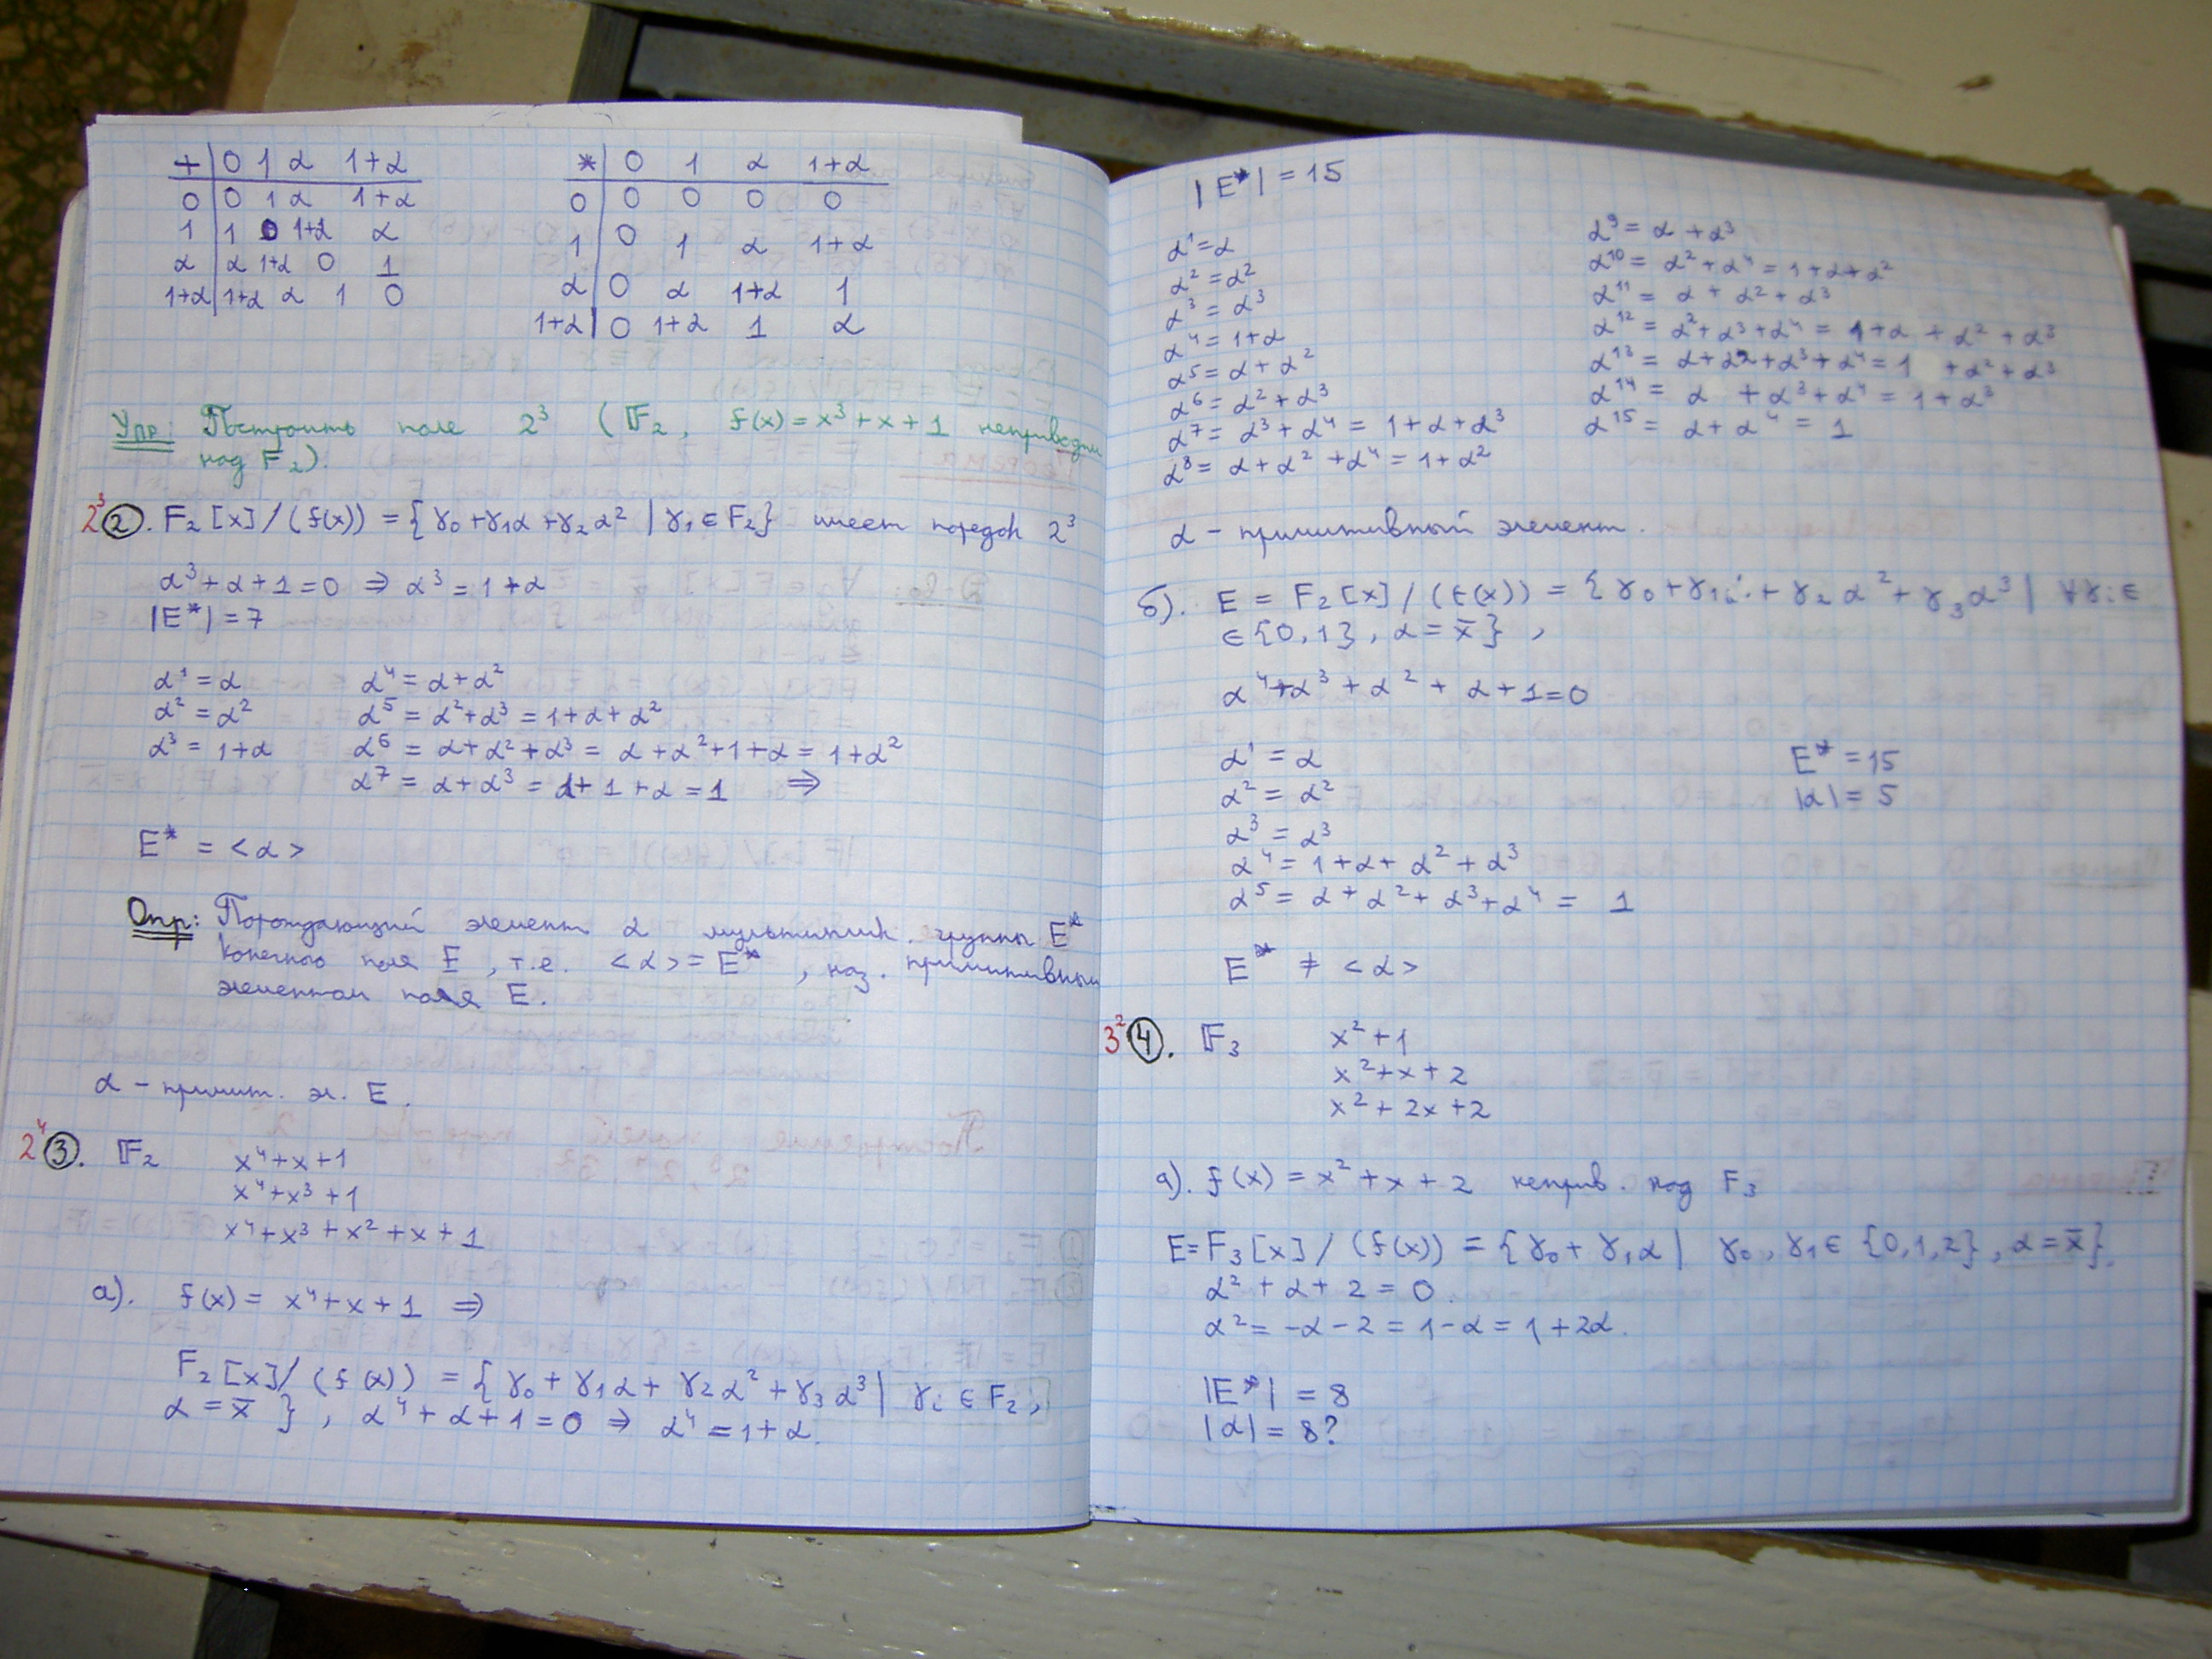 + | 0 1 α 1+α
0 | 0 1 α 1+α
1 | 1 0 1+α α
α | α 1+α 0 1
1+α | 1+α α 1 0
* | 0 1 α 1+α
0 | 0 0 0 0
1 | 0 1 α 1+α
α | 0 α 1+α 1
1+α | 0 1+α 1 α
Упр: Построить поле 2³ (𝔽₂, f(x) = x³ + x + 1 неприводим
над F₂).
2³ ②. F₂[x]/(f(x)) = {γ₀+γ₁α+γ₂α² | γ₁ ∈ F₂} имеет порядок 2³
α³ + α + 1 = 0 ⇒ α³ = 1 + α
|E*| = 7
α¹ = α
α² = α²
α³ = 1+α
α⁴ = α + α²
α⁵ = α² + α³ = 1 + α + α²
α⁶ = α + α² + α³ = α + α² + 1 + α = 1 + α²
α⁷ = α + α³ = α + 1 + α = 1 ⇒
E* = <α>
Опр: Порождающий элемент α мультиплик. группы E*
конечного поля E, т.е. <α> = E*, наз. примитивным
элементом поля E.
α - примит. эл. E.
2⁴ ③. 𝔽₂ x⁴ + x + 1
x⁴ + x³ + 1
x⁴ + x³ + x² + x + 1
а). f(x) = x⁴ + x + 1 ⇒
F₂[x]/(f(x)) = {γ₀ + γ₁α + γ₂α² + γ₃α³ | γᵢ ∈ F₂,
α = x̄ }, α⁴ + α + 1 = 0 ⇒ α⁴ = 1 + α.
|E*| = 15
α¹ = α
α² = α²
α³ = α³
α⁴ = 1+α
α⁵ = α + α²
α⁶ = α² + α³
α⁷ = α³ + α⁴ = 1 + α + α³
α⁸ = α + α² + α⁴ = 1 + α²
α⁹ = α + α³
α¹⁰ = α² + α⁴ = 1 + α + α²
α¹¹ = α + α² + α³
α¹² = α² + α³ + α⁴ = 1 + α + α² + α³
α¹³ = α + α2 + α³ + α⁴ = 1 + α² + α³
α¹⁴ = α + α³ + α⁴ = 1 + α³
α¹⁵ = α + α⁴ = 1
α - примитивный элемент.
б). E = F₂[x]/(f(x)) = {γ₀ + γ₁ + γ₂α² + γ₃α³ | ∀γᵢ ∈
∈ {0, 1}, α = x̄ },
α⁴ + α³ + α² + α + 1 = 0
α¹ = α
α² = α²
α³ = α³
α⁴ = 1 + α + α² + α³
α⁵ = α + α² + α³ + α⁴ = 1
E* = 15
|α| = 5
E* ≠ <α>
3² ④. 𝔽₃ x² + 1
x² + x + 2
x² + 2x + 2
а). f(x) = x² + x + 2 неприв. над F₃
E = F₃[x]/(f(x)) = {γ₀ + γ₁α | γ₀, γ₁ ∈ {0,1,2}, α = x̄}.
α² + α + 2 = 0.
α² = -α - 2 = 1 - α = 1 + 2α.
|E*| = 8
|α| = 8?